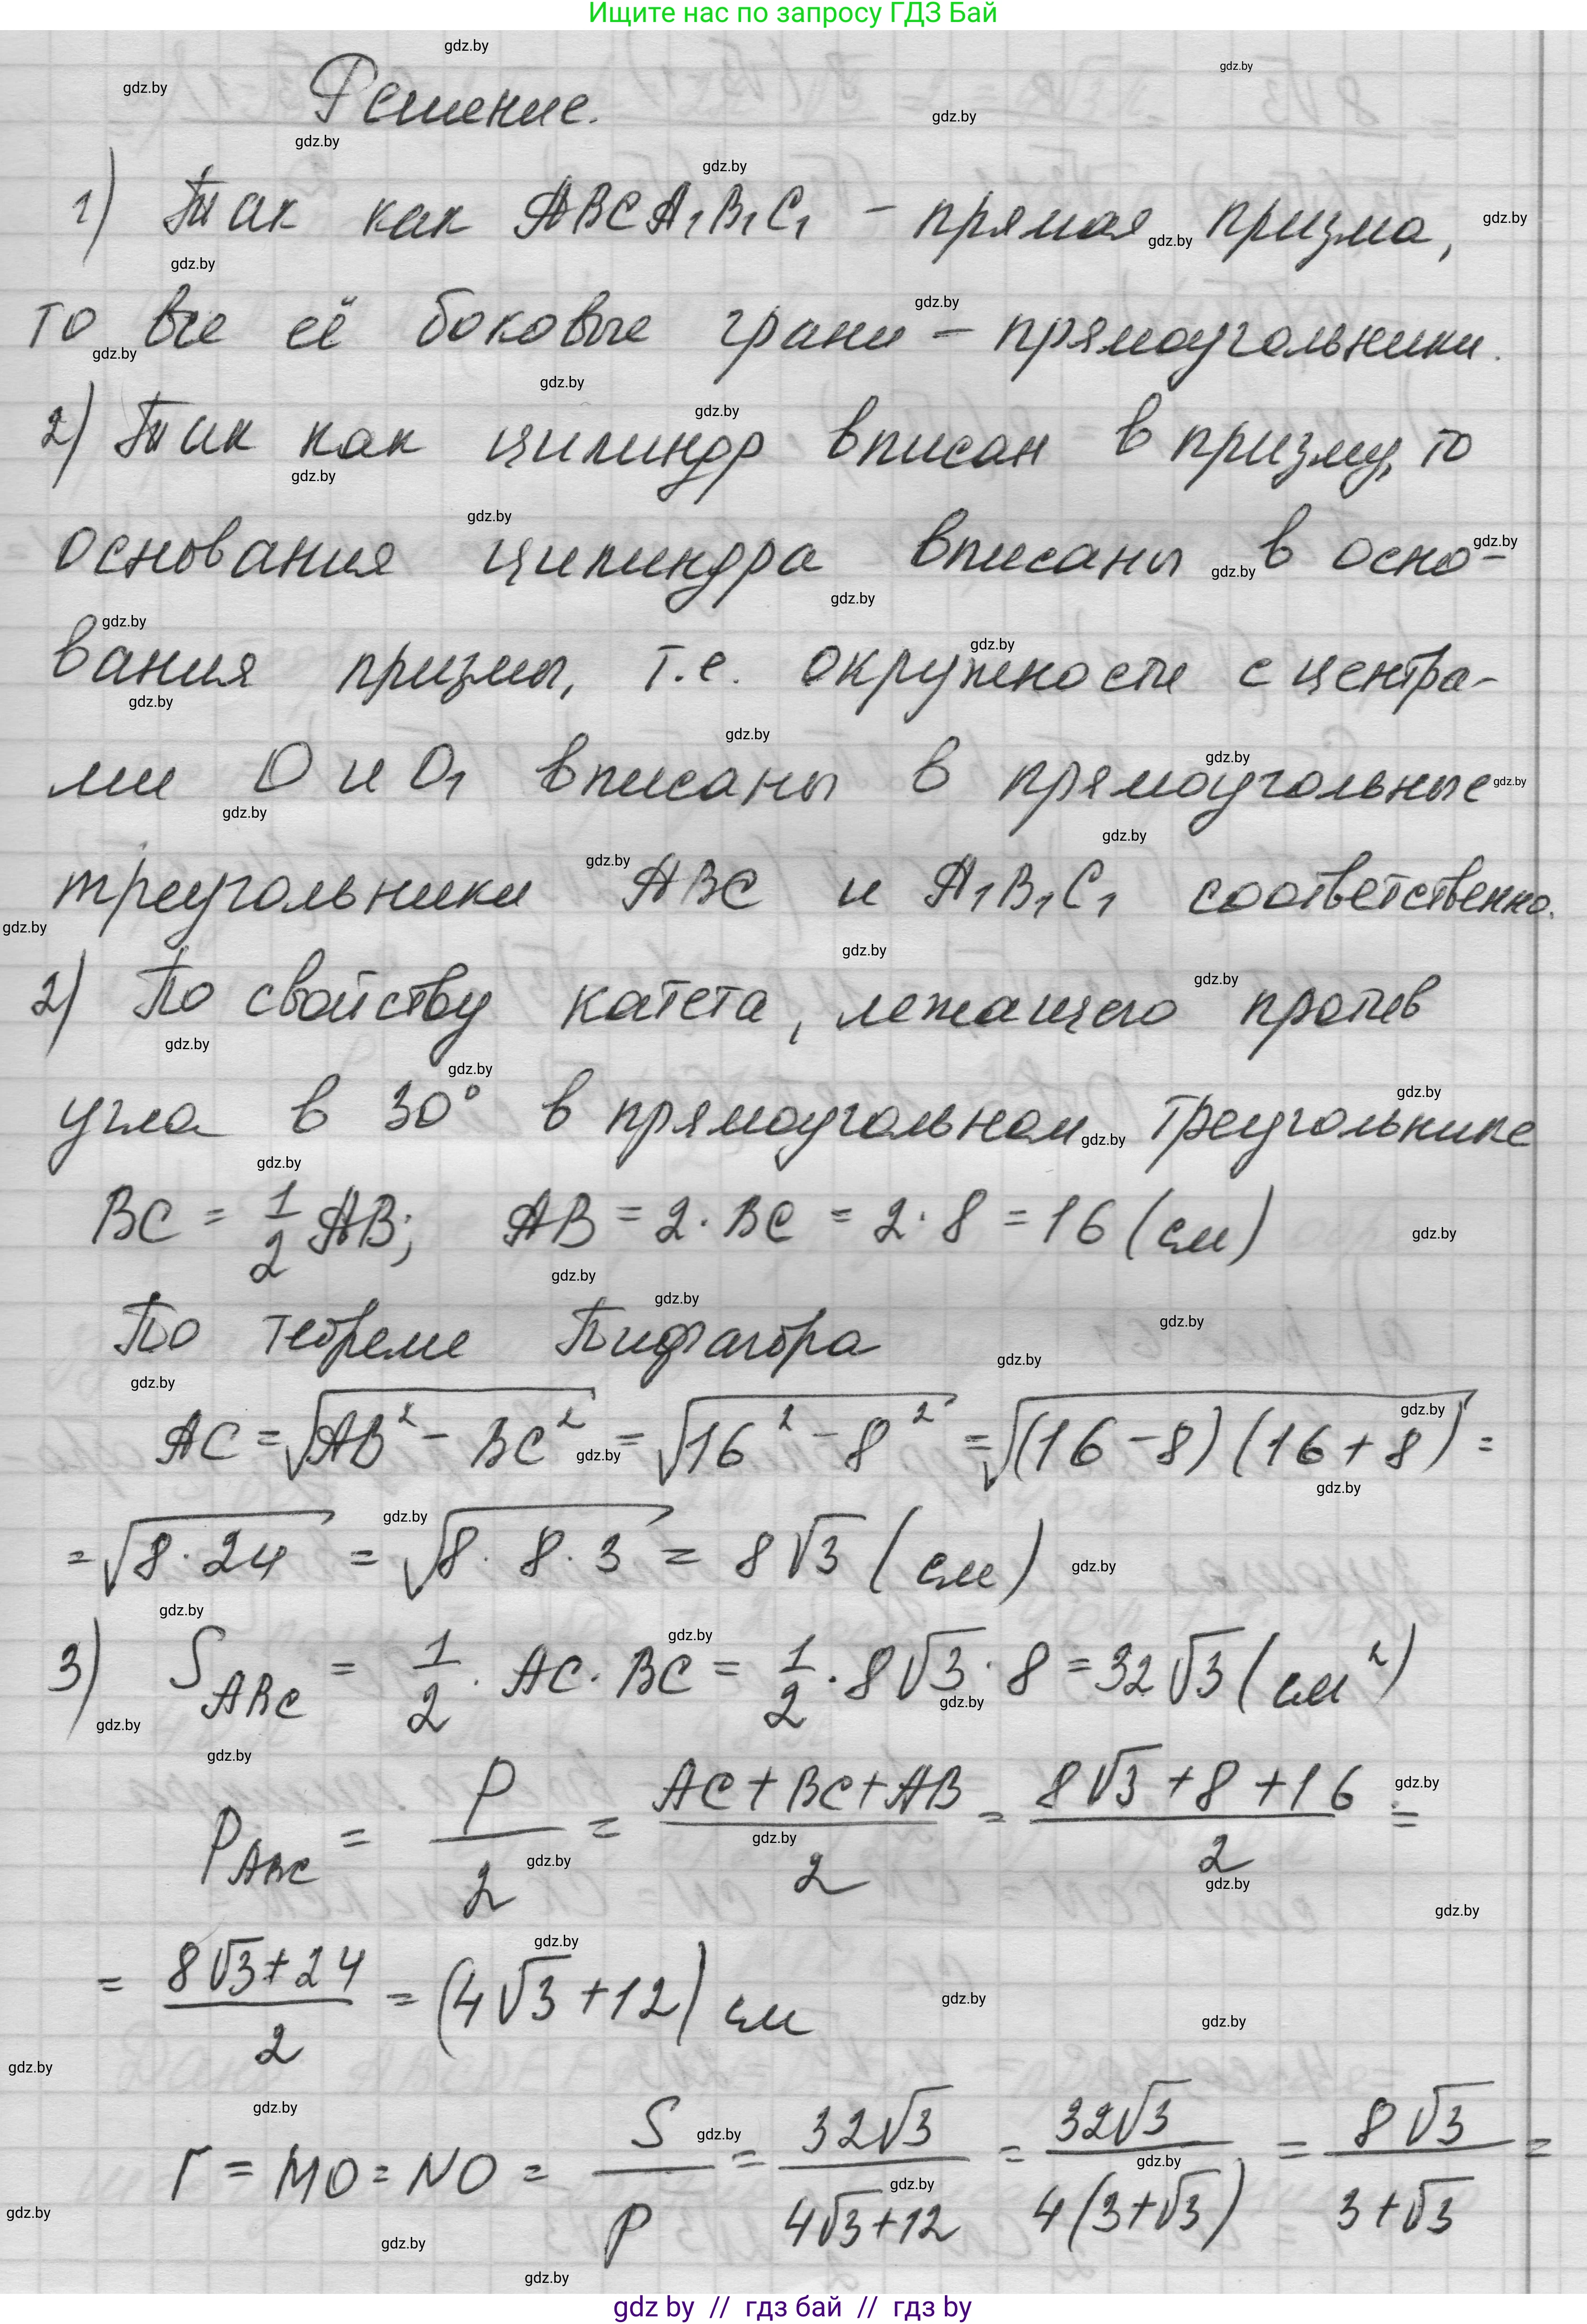 Ищите нас по запросу ГДЗ Бай
Решение.
1) Так как ABCA₁B₁C₁ – прямая призма,
то все её боковые грани – прямоугольники.
2) Так как цилиндр вписан в призму, то
основания цилиндра вписаны в осно-
вания призмы, т.е. окружности с центра-
ми O и O₁ вписаны в прямоугольные
треугольники ABC и A₁B₁C₁ соответственно.
2) По свойству катета, лежащего против
угла в 30° в прямоугольном треугольнике
BC = 1/2 AB; AB = 2 · BC = 2 · 8 = 16 (см)
По теореме Пифагора
AC = √(AB² – BC²) = √(16² – 8²) = √((16 – 8)(16 + 8)) =
= √(8 · 24) = √(8 · 8 · 3) = 8√3 (см)
3) S_ABC = 1/2 · AC · BC = 1/2 · 8√3 · 8 = 32√3 (см²)
p_ABC = P/2 = (AC + BC + AB)/2 = (8√3 + 8 + 16)/2 =
= (8√3 + 24)/2 = (4√3 + 12) см
r = MO = NO = S/p = 32√3/(4√3 + 12) = 32√3/(4(3 + √3)) = 8√3/(3 + √3) =
gdz by // гдз бай // гдз by